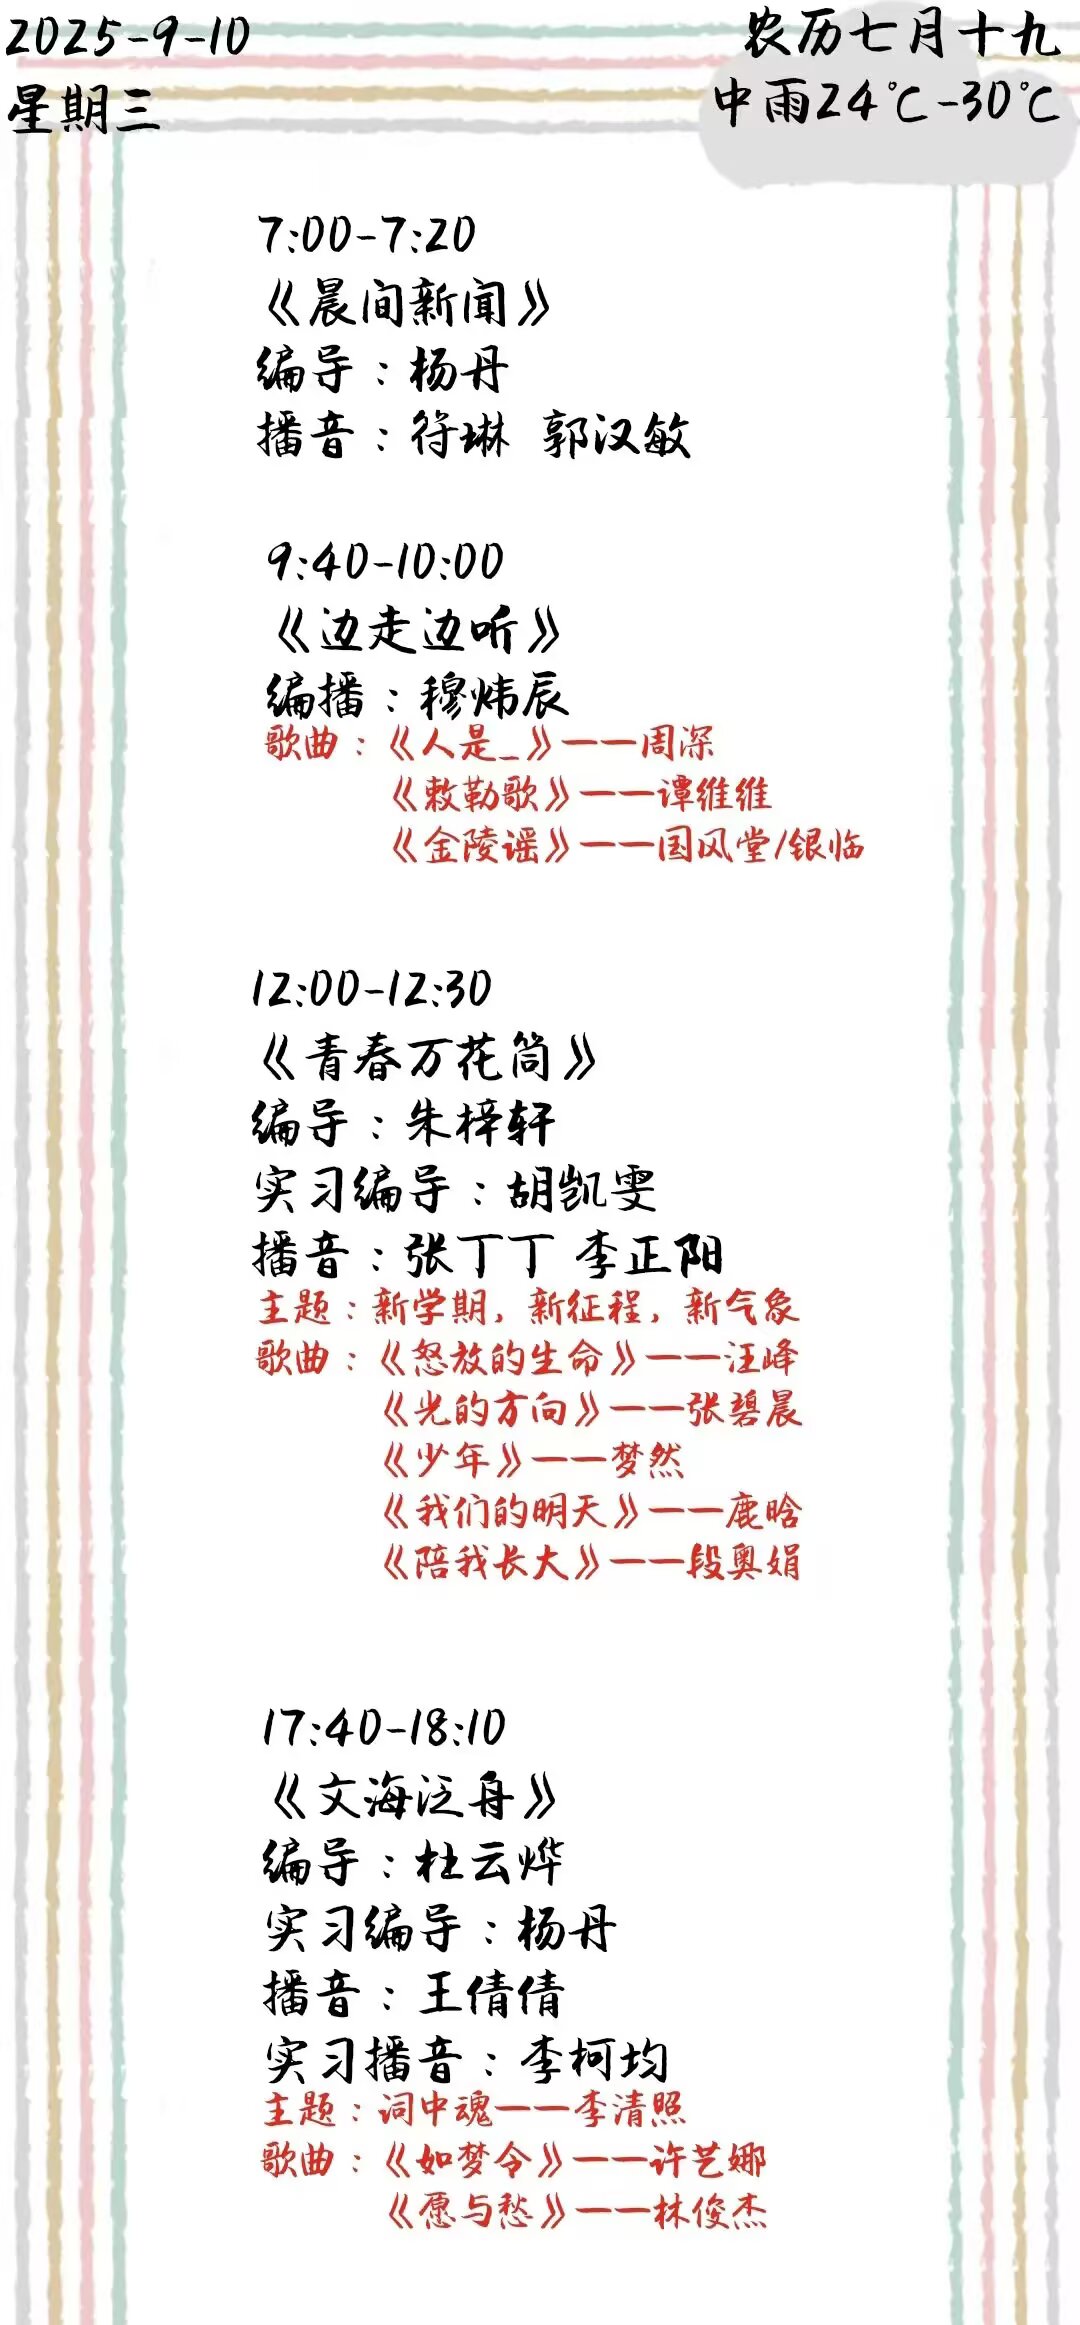 2025-9-10
星期三
农历七月十九
中雨24℃-30℃
7:00-7:20
《晨间新闻》
编导：杨丹
播音：符琳 郭汉敏
9:40-10:00
《边走边听》
编播：穆炜辰
歌曲：《人是_》——周深
《敕勒歌》——谭维维
《金陵谣》——国风堂/银临
12:00-12:30
《青春万花筒》
编导：朱梓轩
实习编导：胡凯雯
播音：张丁丁 李正阳
主题：新学期，新征程，新气象
歌曲：《怒放的生命》——汪峰
《光的方向》——张碧晨
《少年》——梦然
《我们的明天》——鹿晗
《陪我长大》——段奥娟
17:40-18:10
《文海泛舟》
编导：杜云烨
实习编导：杨丹
播音：王倩倩
实习播音：李柯均
主题：词中魂——李清照
歌曲：《如梦令》——许艺娜
《愿与愁》——林俊杰